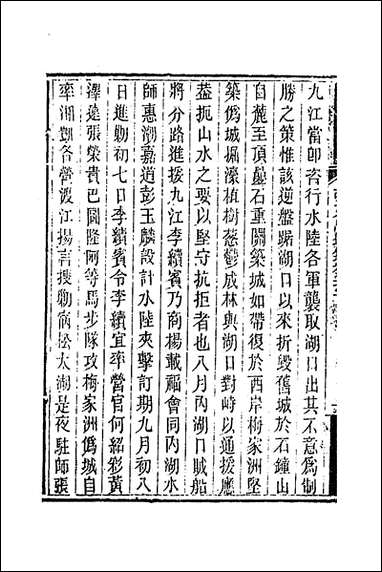 九江當卽咨行水陸各軍襲取湖口出其不意爲制
勝之策惟該逆盤踞湖口以來折毀舊城於石鐘山
自麓至頂壘石重關築城如帶復於西岸梅家洲堅
築僞城掘濠植樹蓊鬱成林與湖口對峙以通援應
葢扼山水之要以堅守抗拒者也八月內湖口賊船
將分路進援九江李續賓乃商楊載福會同內湖水
師惠潮嘉道彭玉麟設計水陸夾擊訂期九月初八
日進勦初七日李續賓令李續宜率營官何紹彩黃
澤遠張榮貴巴圖隆阿等馬步隊攻梅家洲僞城自
率湘訓各營渡江揚言搜勦宿松太湖是夜駐師張